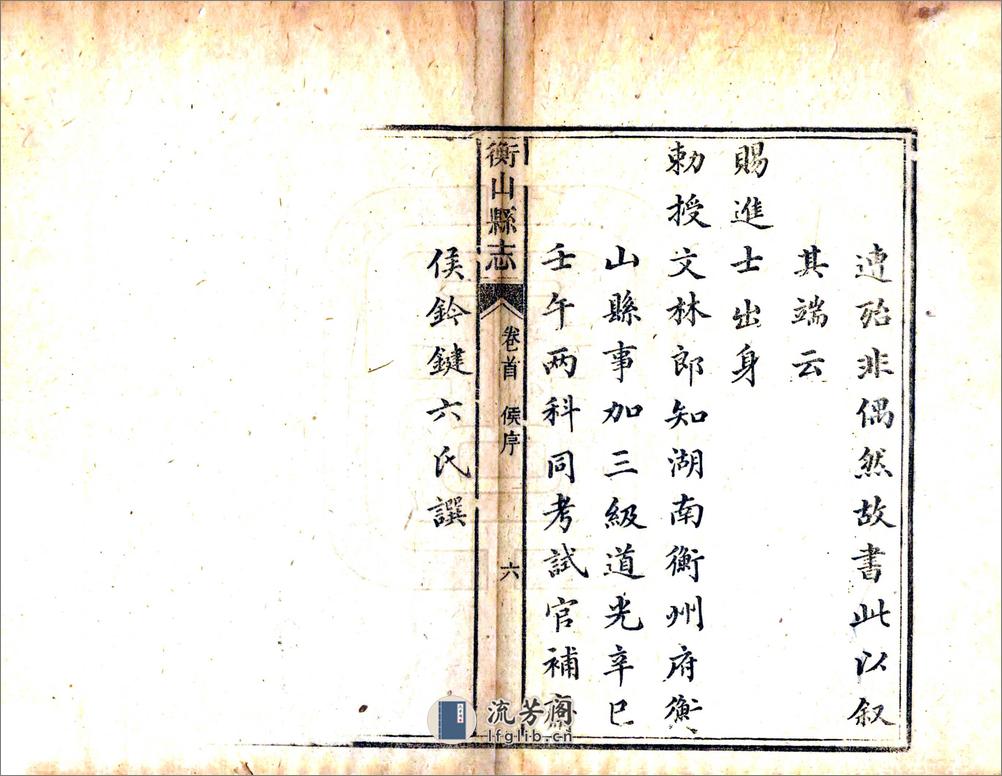 連殆非偶然故書此以叙
其端云
賜進士出身
勅授文林郎知湖南衡州府衡
山縣事加三級道光辛巳
壬午两科同考試官補齋
衡山縣志
卷首 侯序 六
侯鈐鍵六氏譔
流芳阁
lfglib.cn